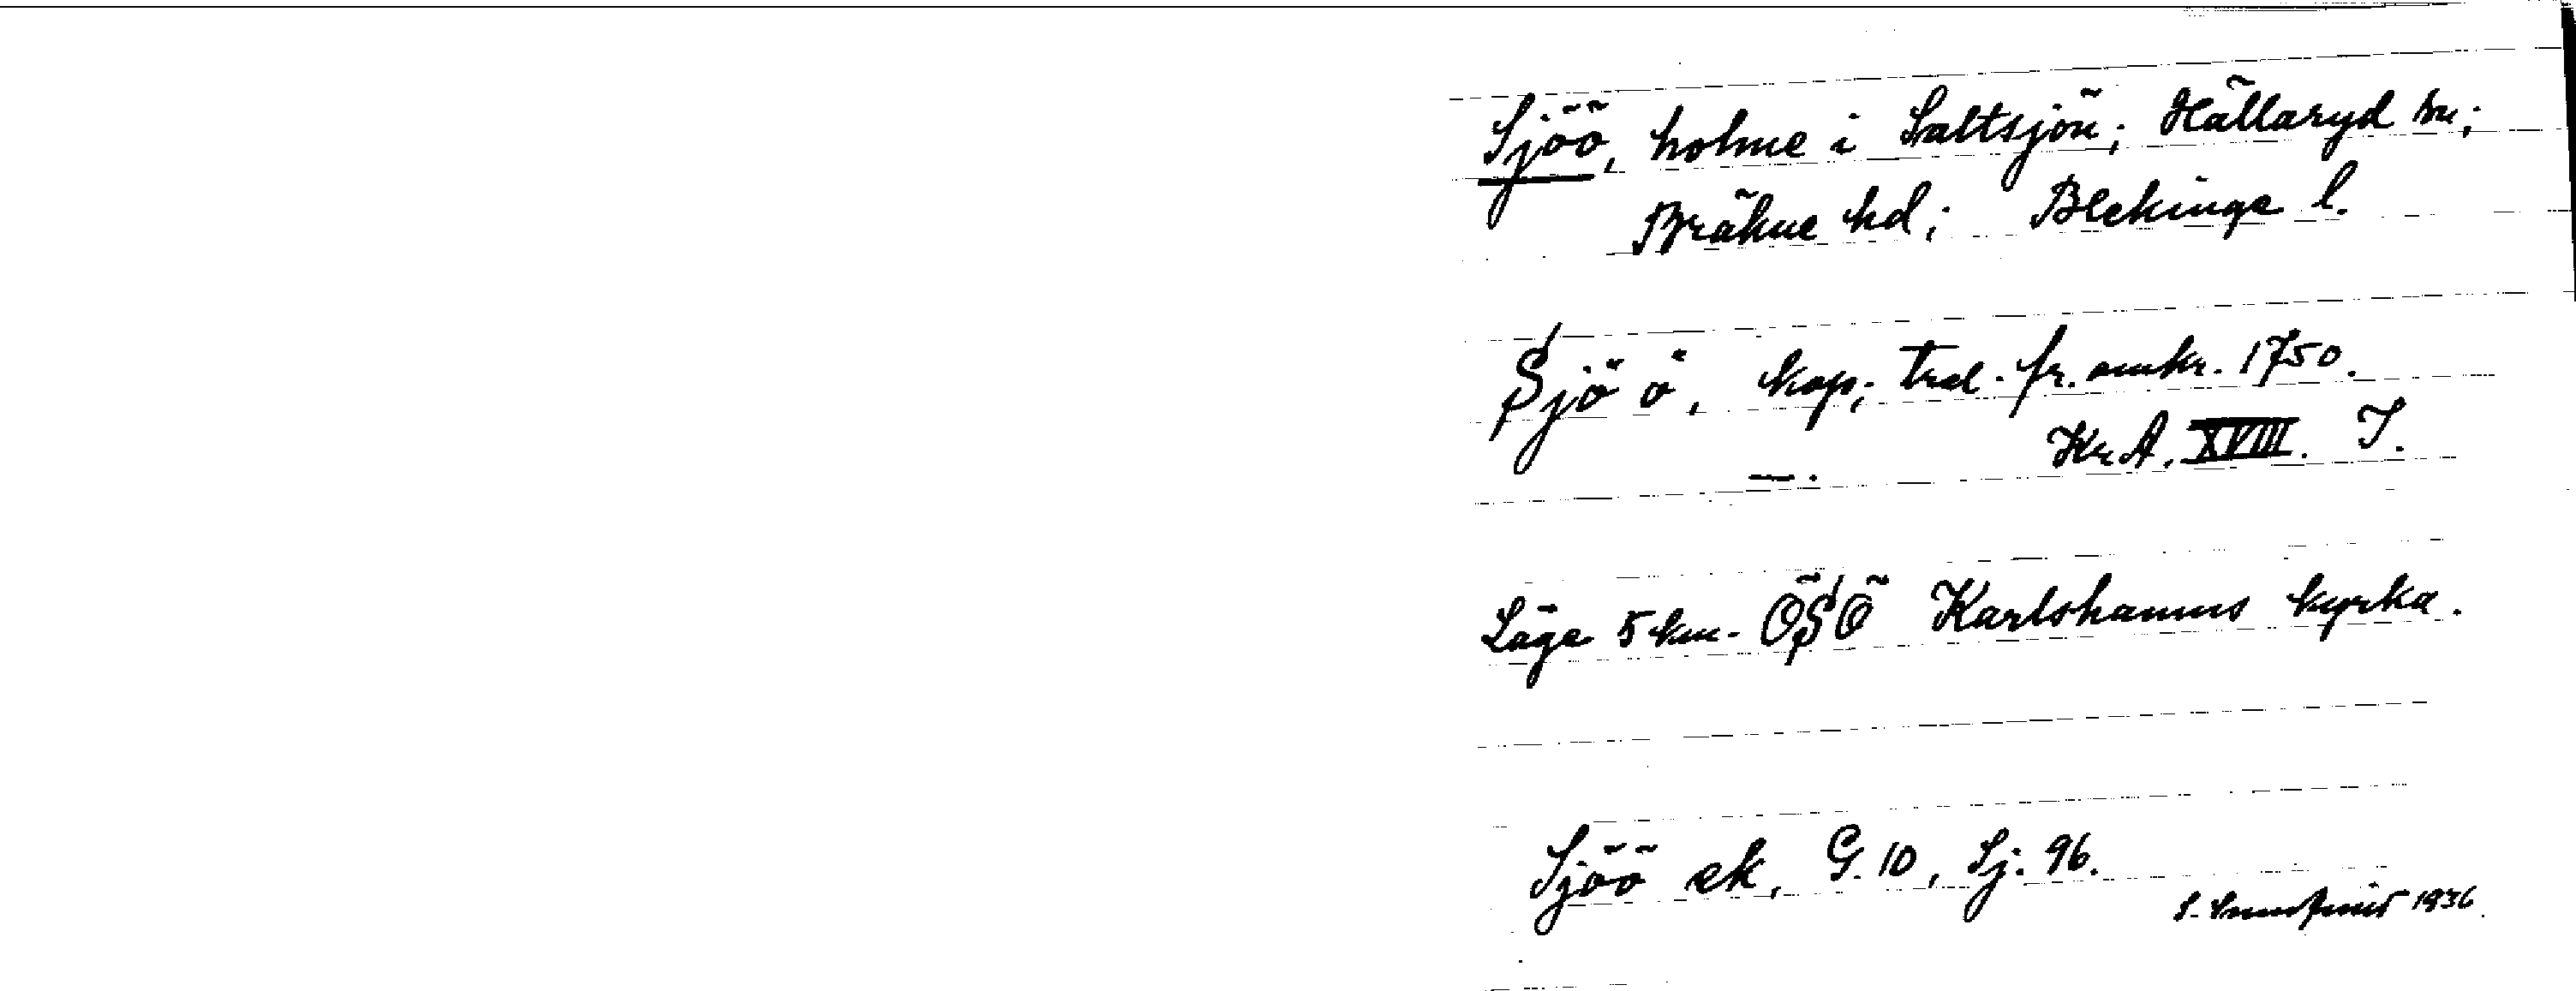 Sjöö, holme i Saltsjön; Hällaryd sn;
Bräkne hd; Blekinge l.
Sjö ö, kop; trol. fr. omkr. 1750.
—. KrA. XVIII. I.
Läge 5 km. ÖSÖ Karlshamns kyrka.
Sjöö ek, G. 10, Sj. 96.
1936.